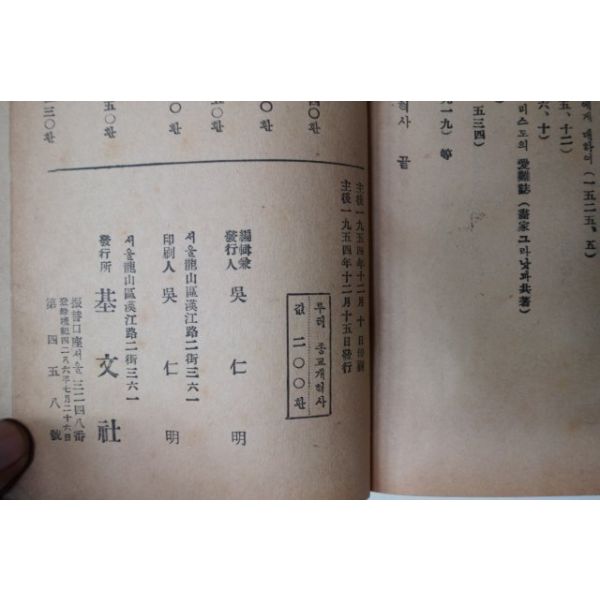 에게 대하여 (一五二五、五)
五、十二)
六、十)
미스도의 愛難誌 (畵家그라낫과 共著)
五三四)
九一九) 等
혁사 끝
四〇환
〇환
五〇환
〇환
五〇환
一三〇환
主後一九五四年十二月 十日印刷
主後一九五四年十二月十五日發行
루터 종교개혁사
값 二〇〇환
編輯兼
發行人 吳仁明
서울龍山區漢江路二街三六一
印刷人 吳仁明
서울龍山區漢江路二街三六一
發行所 基文社
振替口座서울三二四八番
登錄檀紀四二八六年七月二十六日
第四五八號